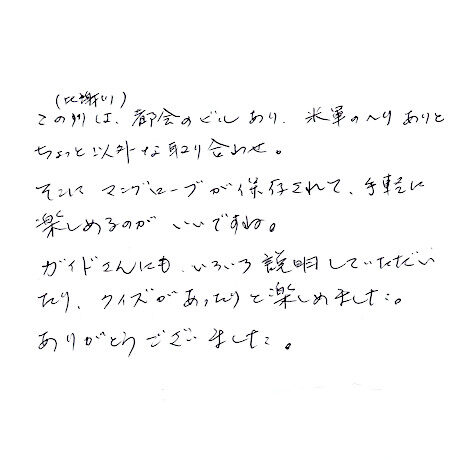 (比謝川)
この川は、都会のビルあり、米軍のヘリありと
ちょっと以外な取り合わせ。
そこに マングローブが保存されて、手軽に
楽しめるのが いいですね。
ガイドさんにも、いろいろ説明していただい
たり、クイズがあったりと楽しめました。
ありがとうございました。